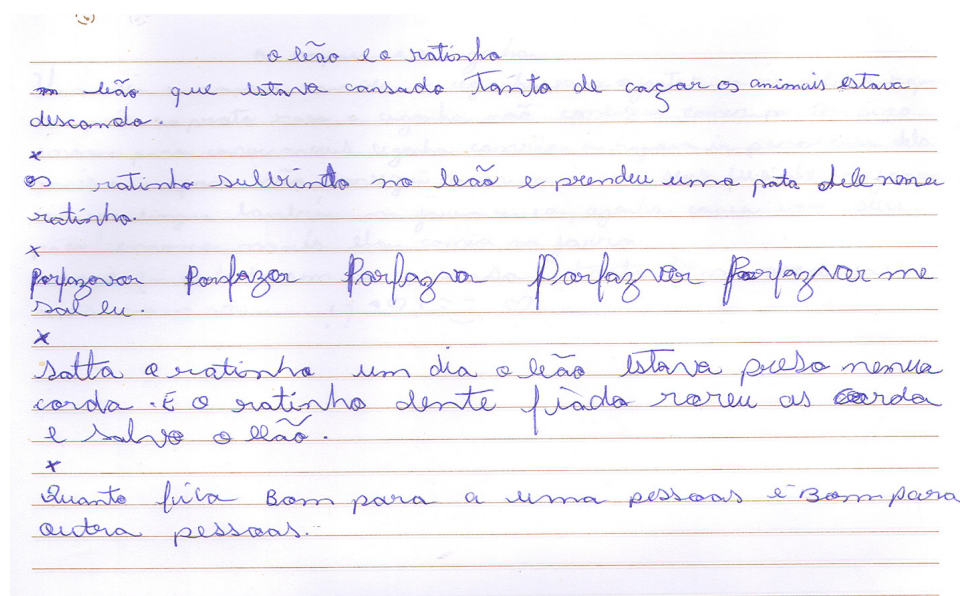 o leão e o ratinho
m leão que estava cansado Tanto de caçar os animais estava
descando.
x
os ratinho sulbrindo no leão e prendeu uma pata dele nema
ratinho.
x
Porfazovar Ponfazer Porfazva Porfazvor Porfazver me
sal eu.
x
Solta o ratinho um dia o leão estava preso nenua
corda. E o ratinho dente fiado roreu as corda
e salvo o leão.
x
Quanto fica Bom para a uma pessoas é Bom para
outra pessoas.